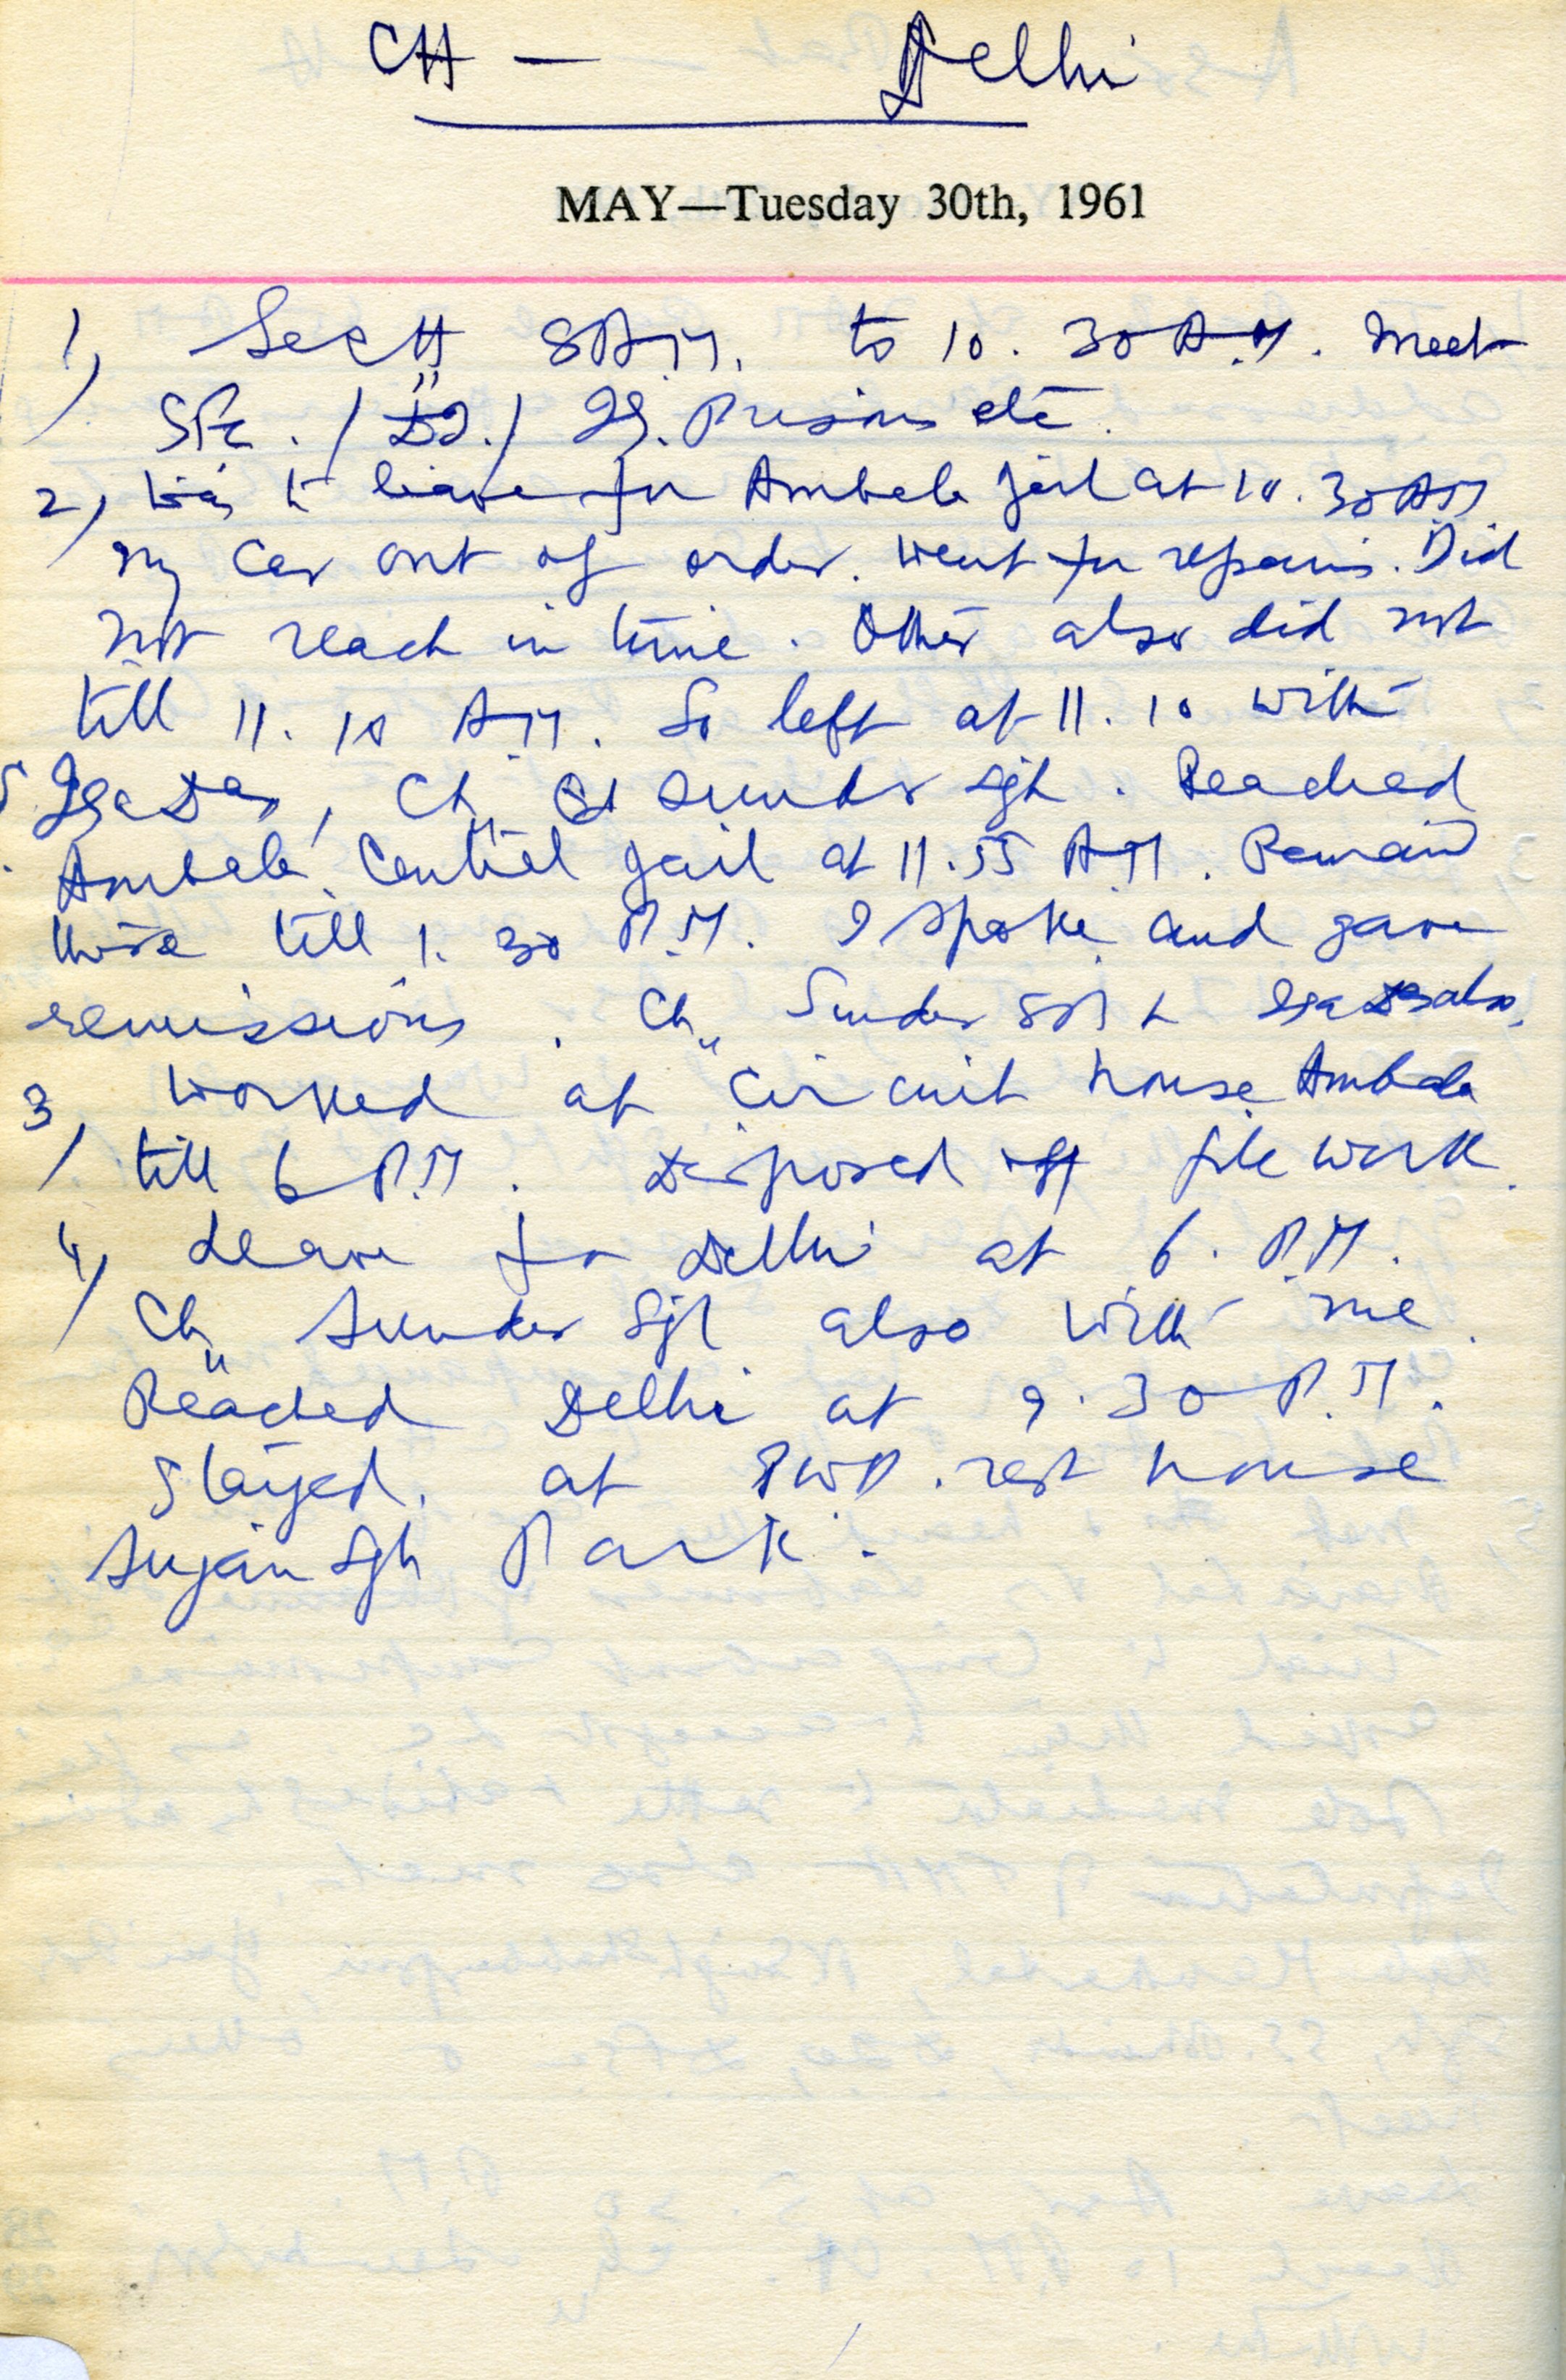 CH — Delhi
MAY—Tuesday 30th, 1961
1) Sectt 8 A.M. to 10.30 A.M. Meet
/ / IG. Prisons etc.
2) Was to leave for Ambala Jail at 10.30 AM
my car out of order. Went for repairs. Did
not reach in time. Other also did not
till 11.10 A.M. So left at 11.10 with
Ch. Sunder Sgh. Reached
Ambala Central Jail at 11.55 A.M. Remain
there till 1.30 P.M. I spoke and gave
remissions. Ch. Sunder also.
3) Worked at Circuit house Ambala
till 6 P.M. Disposed off file work.
4) Leave for Delhi at 6. P.M.
Ch. Sunder Sgh also with me.
Reached Delhi at 9.30 P.M.
Stayed at PWD. rest house
Sujan Sgh Park.